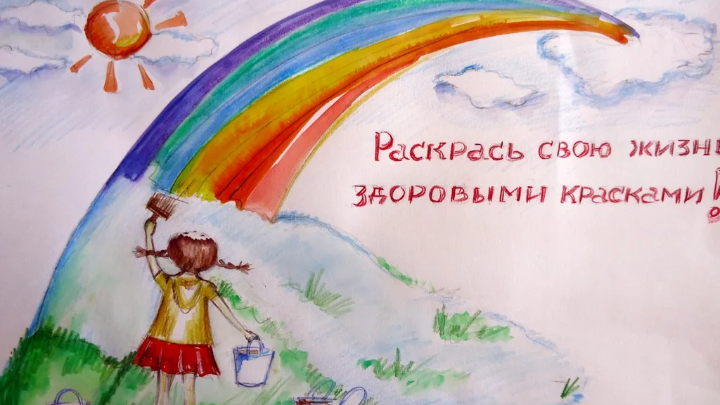 Раскрась свою жизнь
здоровыми красками!